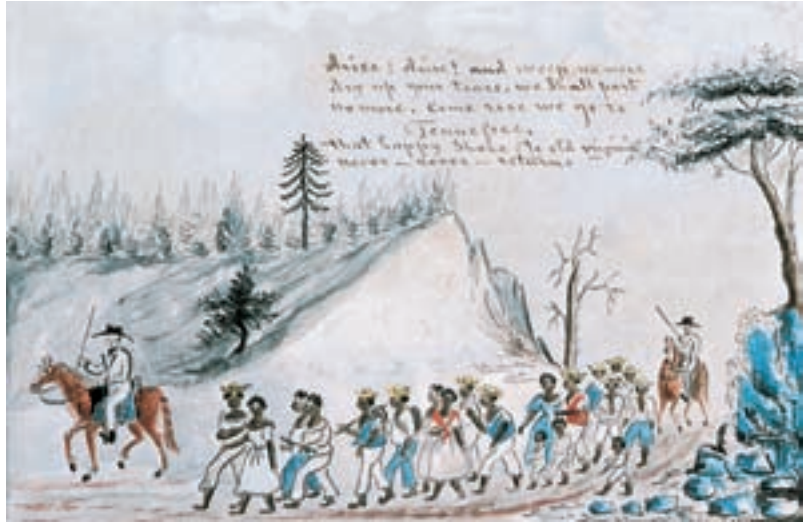 Arise! Arise! and weep no more
dry up your tears, we shall part
no more, come rose we go to
Tennessee,
that happy shore, to old virginia
never - never - return.